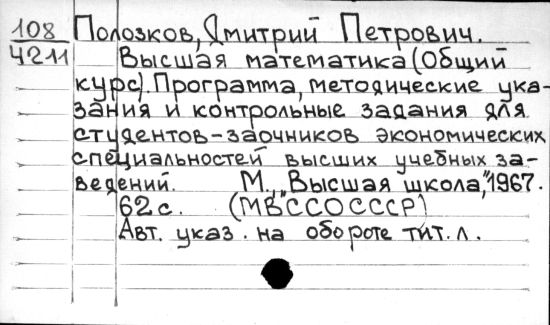 108 Полозков, Дмитрий Петрович.
4211 Высшая математика (Общий
курс). Программа, методические ука-
зания и контрольные задания для
студентов-заочников экономических
специальностей высших учебных за-
ведений. М., "Высшая школа", 1967.
62 с. (МВССОСССР)
Авт. указ. на обороте тит. л.